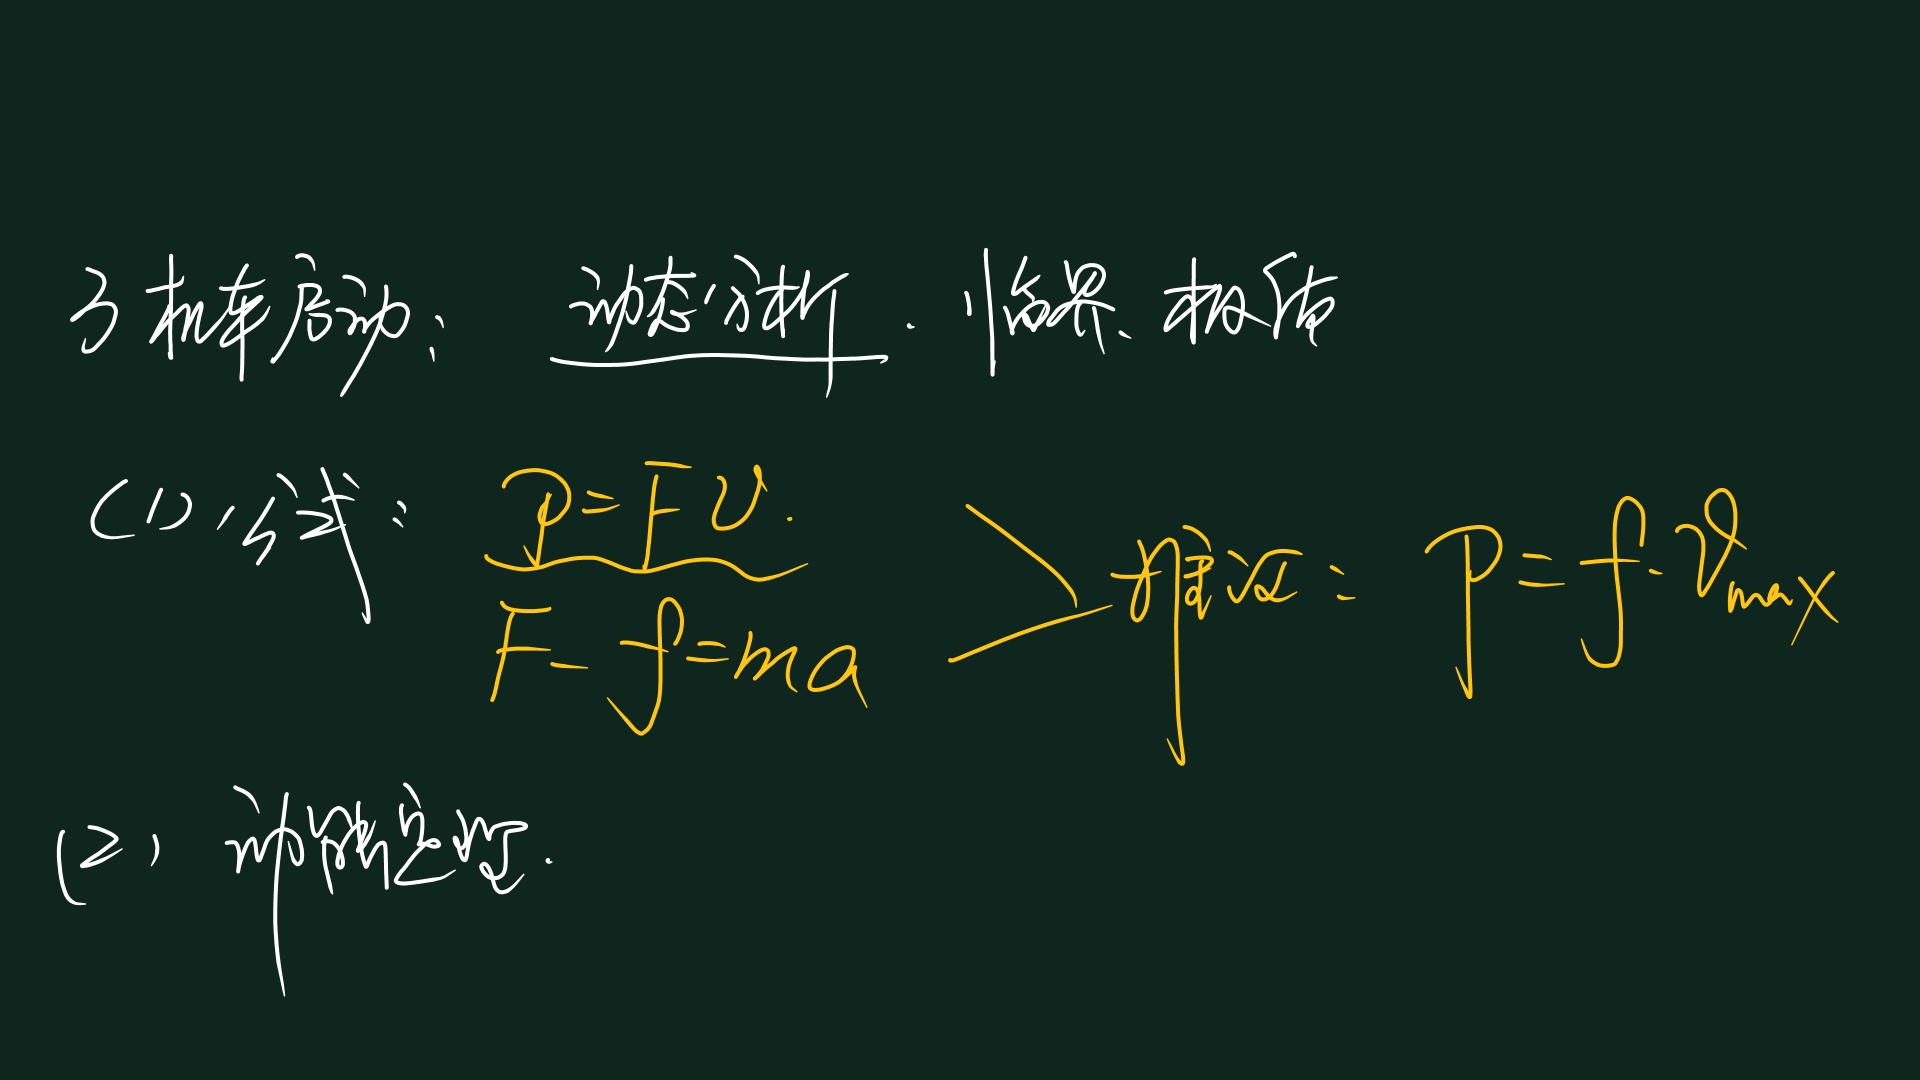 3 机车启动: 动态分析. 临界、极值
(1) 公式: P=Fv.
F-f=ma 推论: P=f·vmax
(2) 动能定理.